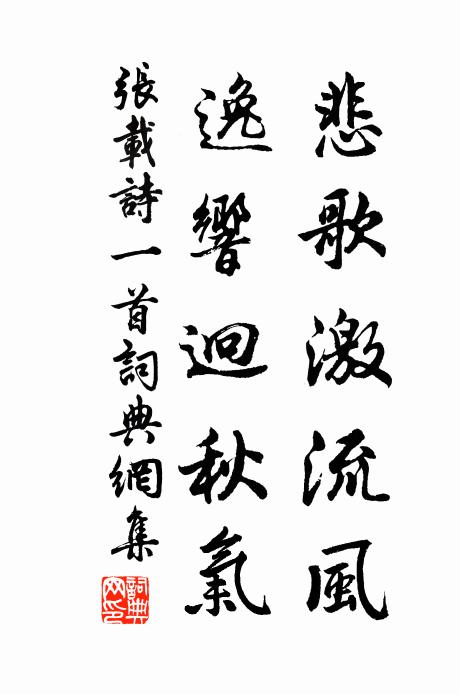 悲歌激流風
逸響迴秋氣
張載詩一首詞典網集
詞典網印